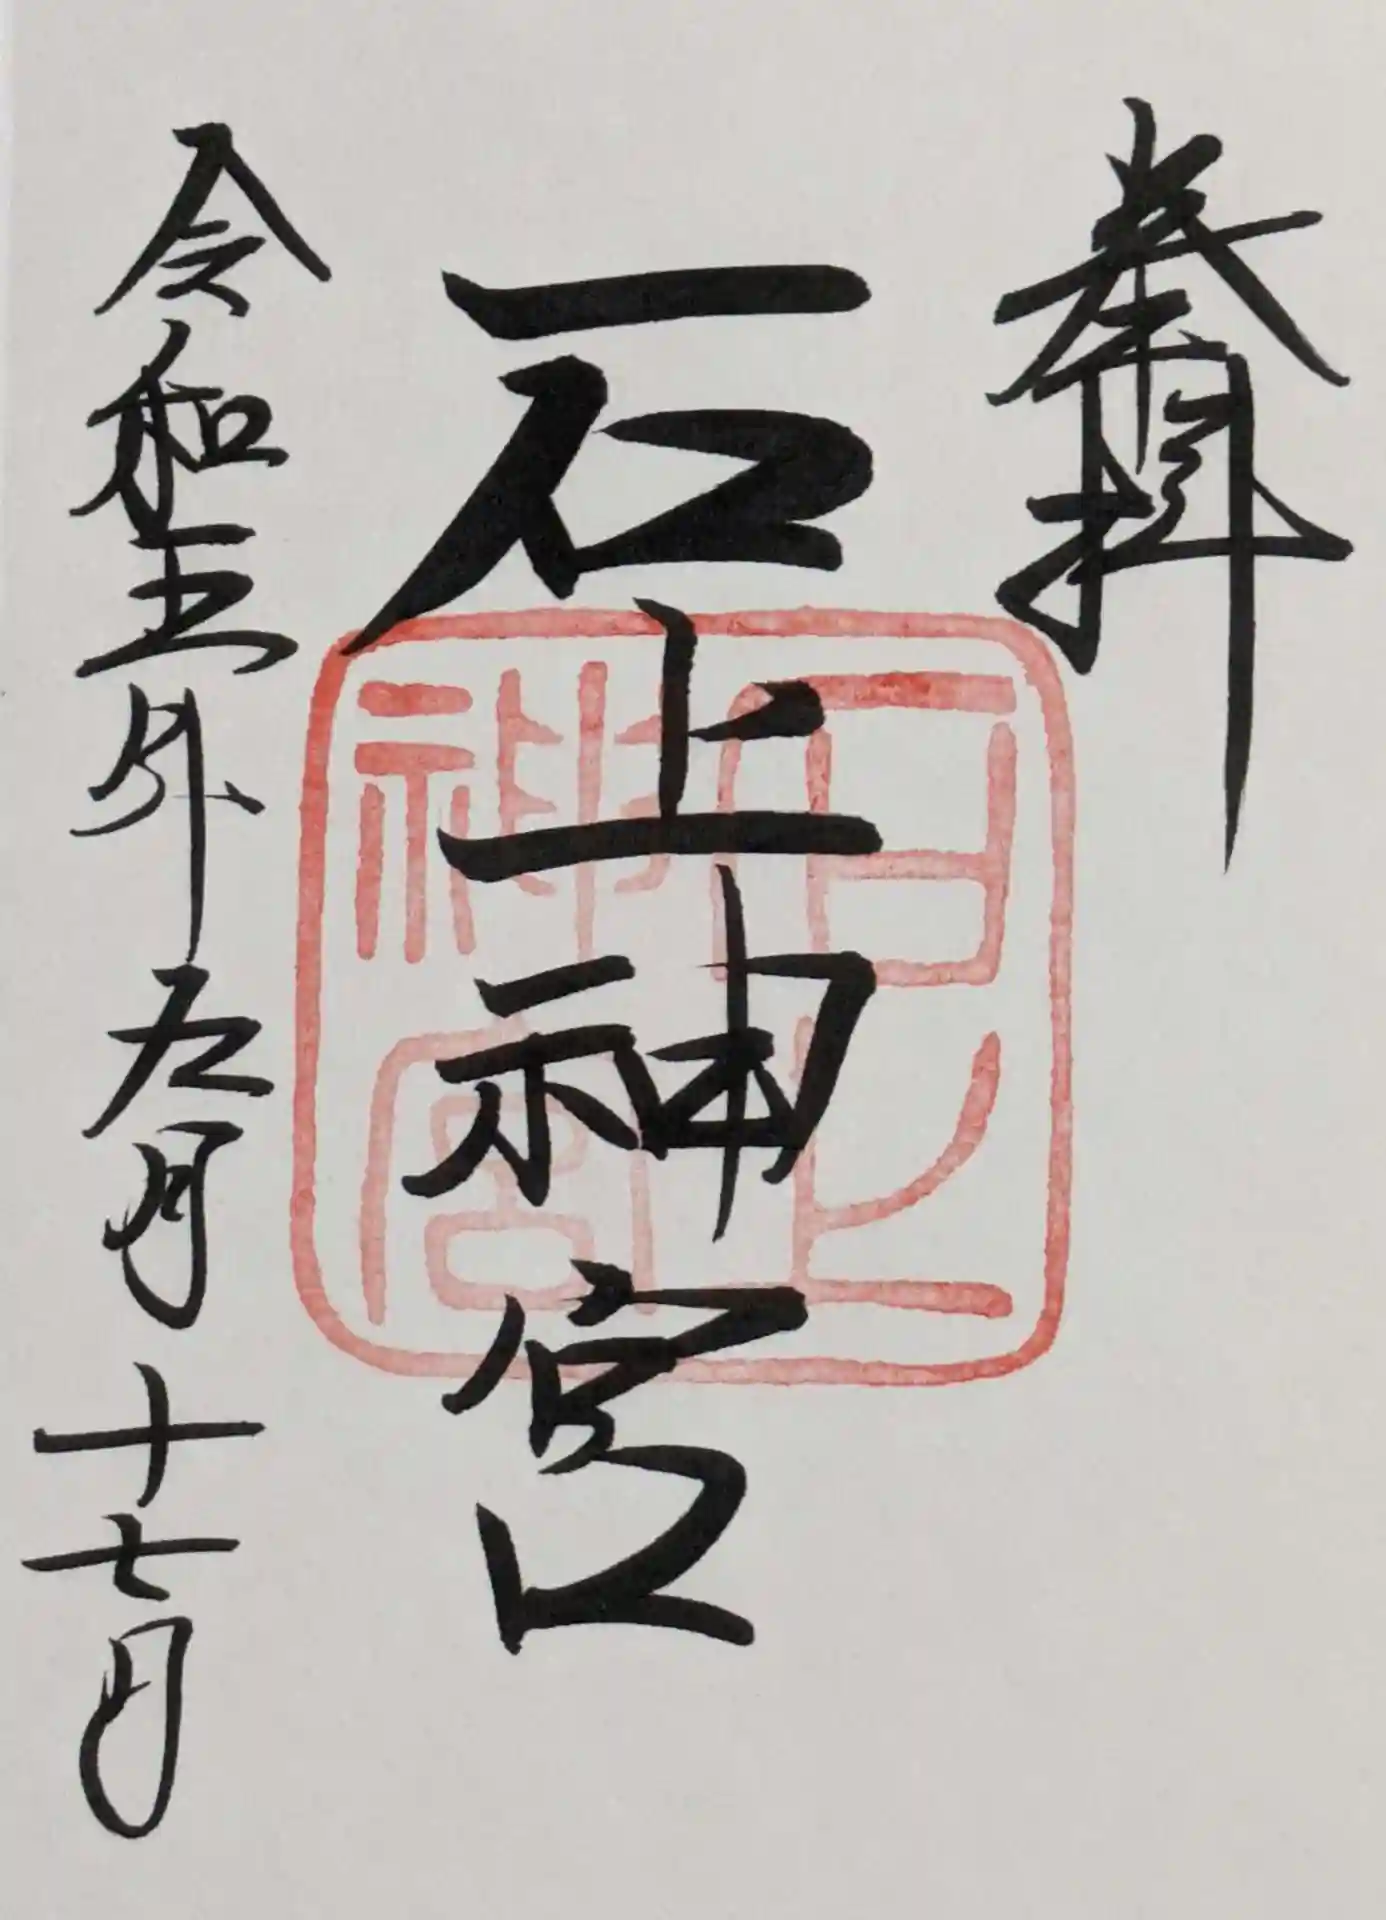 奉拝
石上神宮
令和五年九月十七日
石上
神宮